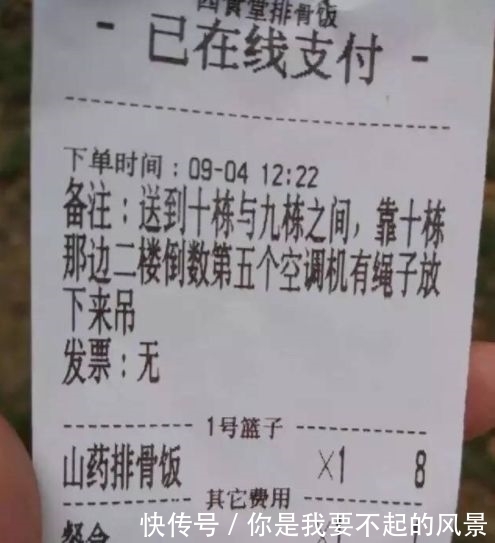 四食堂排骨饭
- 已在线支付 -
下单时间：09-04 12:22
备注：送到十栋与九栋之间，靠十栋
那边二楼倒数第五个空调机有绳子放
下来吊
发票：无
1号篮子
山药排骨饭 ×1 8
其它费用
餐盒
快传号 / 你是我要不起的风景